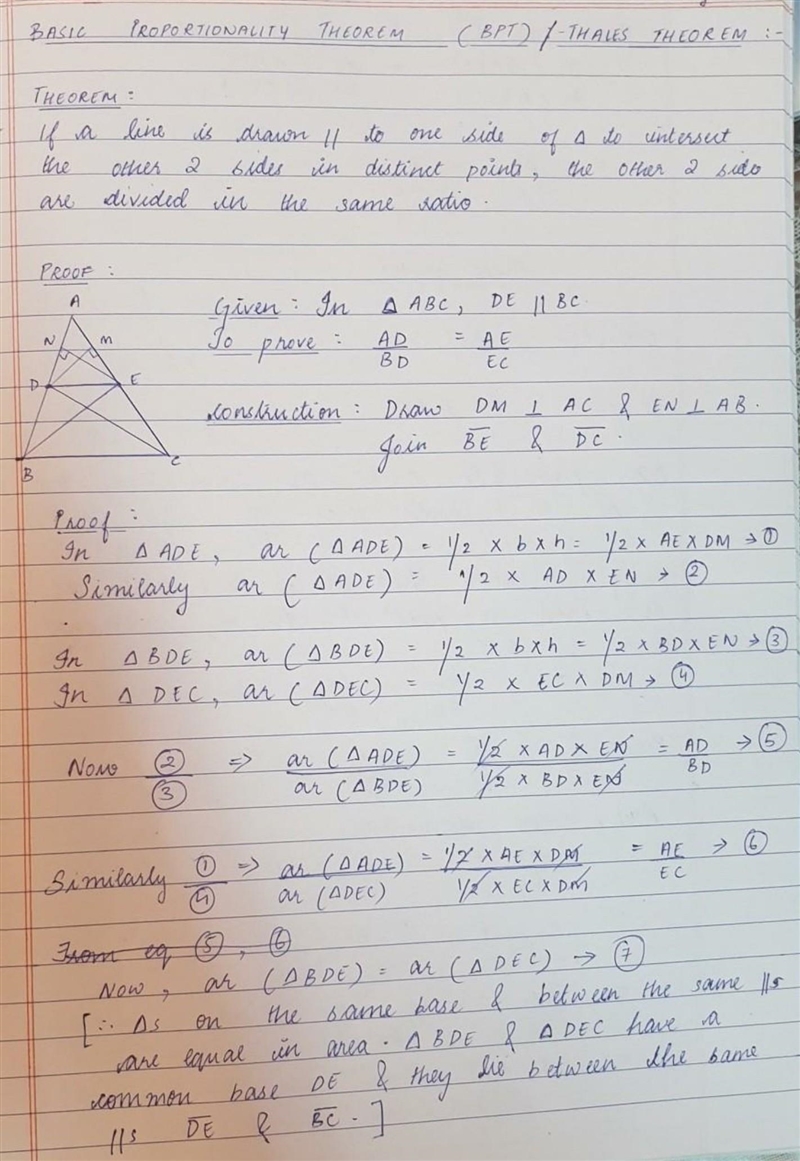 BASIC PROPORTIONALITY THEOREM (BPT) / THALES THEOREM :-
THEOREM:
If a line is drawn || to one side of Δ to intersect
the other 2 sides in distinct points, the other 2 side
are divided in the same ratio.
PROOF :
A
N M
D E
B C
Given : In Δ ABC, DE || BC.
To prove : AD/BD = AE/EC
construction : Draw DM ⊥ AC & EN ⊥ AB.
Join B̅E̅ & D̅C̅.
Proof :
In Δ ADE, ar (Δ ADE) = 1/2 × b × h = 1/2 × AE × DM → ①
Similarly ar (Δ ADE) = 1/2 × AD × EN → ②
In Δ BDE, ar (Δ BDE) = 1/2 × b × h = 1/2 × BD × EN → ③
In Δ DEC, ar (Δ DEC) = 1/2 × EC × DM → ④
Now ②/③ ⇒ ar (Δ ADE)/ar (Δ BDE) = 1/2 × AD × EN/1/2 × BD × EN = AD/BD → ⑤
Similarly ①/④ ⇒ ar (Δ ADE)/ar (Δ DEC) = 1/2 × AE × DM/1/2 × EC × DM = AE/EC → ⑥
From eq ⑤, ⑥
Now, ar (Δ BDE) = ar (Δ DEC) → ⑦
[∴ Δs on the same base & between the same ||s
are equal in area. Δ BDE & Δ DEC have a
common base DE & they lie between the same
||s D̅E̅ & B̅C̅.]